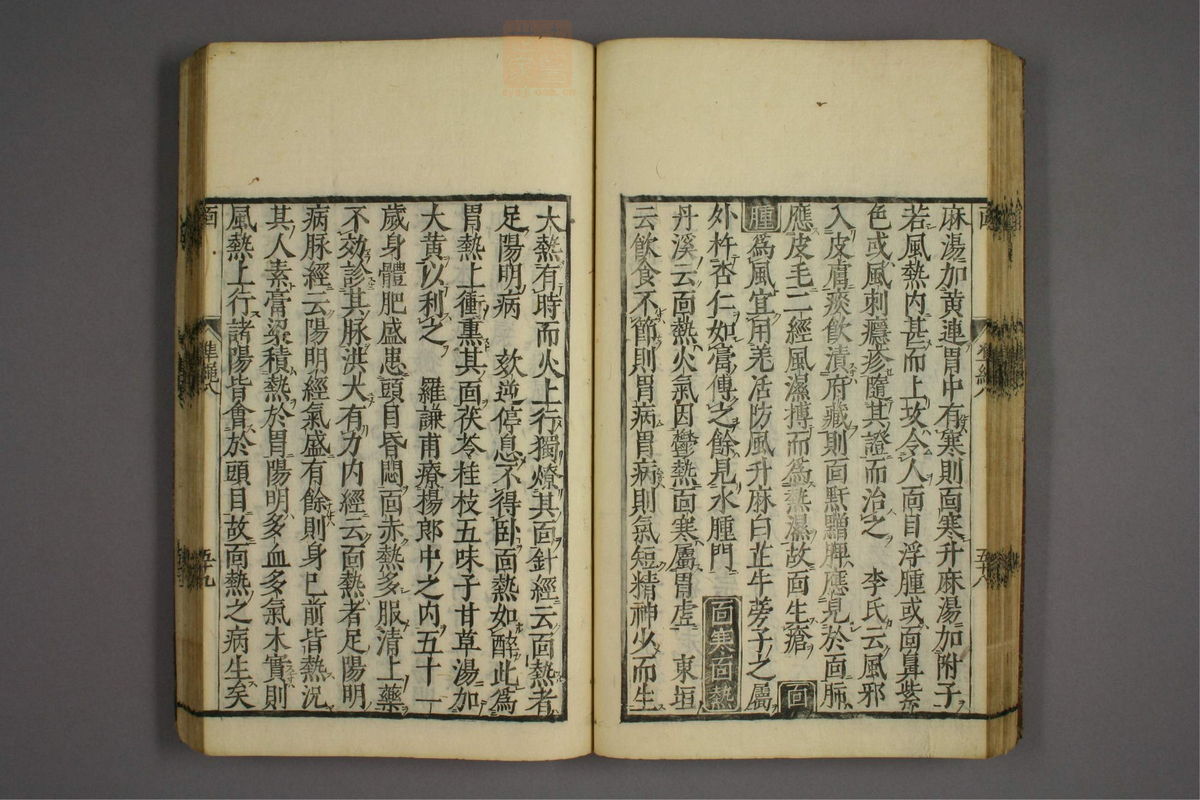 麻湯加黄連胃中有寒則面寒升麻湯加附子
若風熱内甚而上攻令人面目浮腫或面鼻紫
色或風刺癮疹隨其證而治之　李氏云風邪
入皮膚痰飲漬府藏則面䵟䵳脾應見於面肺
應皮毛二經風濕搏而為熱濕故面生瘡　面
腫爲風宜用羌活防風升麻白芷牛蒡子之屬
外杵杏仁如膏傅之餘見水腫門　面寒面熱
丹溪云面熱火氣因鬱熱面寒屬胃虚　東垣
云飲食不節則胃病胃病則氣短精神少而生
大熱有時而火上行獨燎其面針經云面熱者
足陽明病　欬逆停息不得卧面熱如醉此爲
胃熱上衝熏其面茯苓桂枝五味子甘草湯加
大黄以利之　羅謙甫療楊郎中之内五十一
歲身體肥盛患頭目昏悶面赤熱多服清上藥
不効診其脉洪大有力内經云面熱者足陽明
病脉經云陽明經氣盛有餘則身已前皆熱況
其人素膏粱積熱於胃陽明多血多氣木實則
風熱上行諸陽皆會於頭目故面熱之病生矣
面
準繩八
五十九